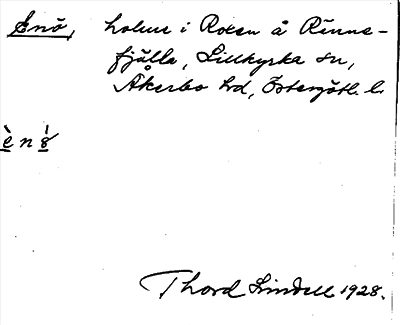 Enö, holme i Roxen å Rinna-
fjälla, Lillkyrka sn,
Åkerbo hd, Östergötl. l.
è n ö̀
Thord Lindell 1928.